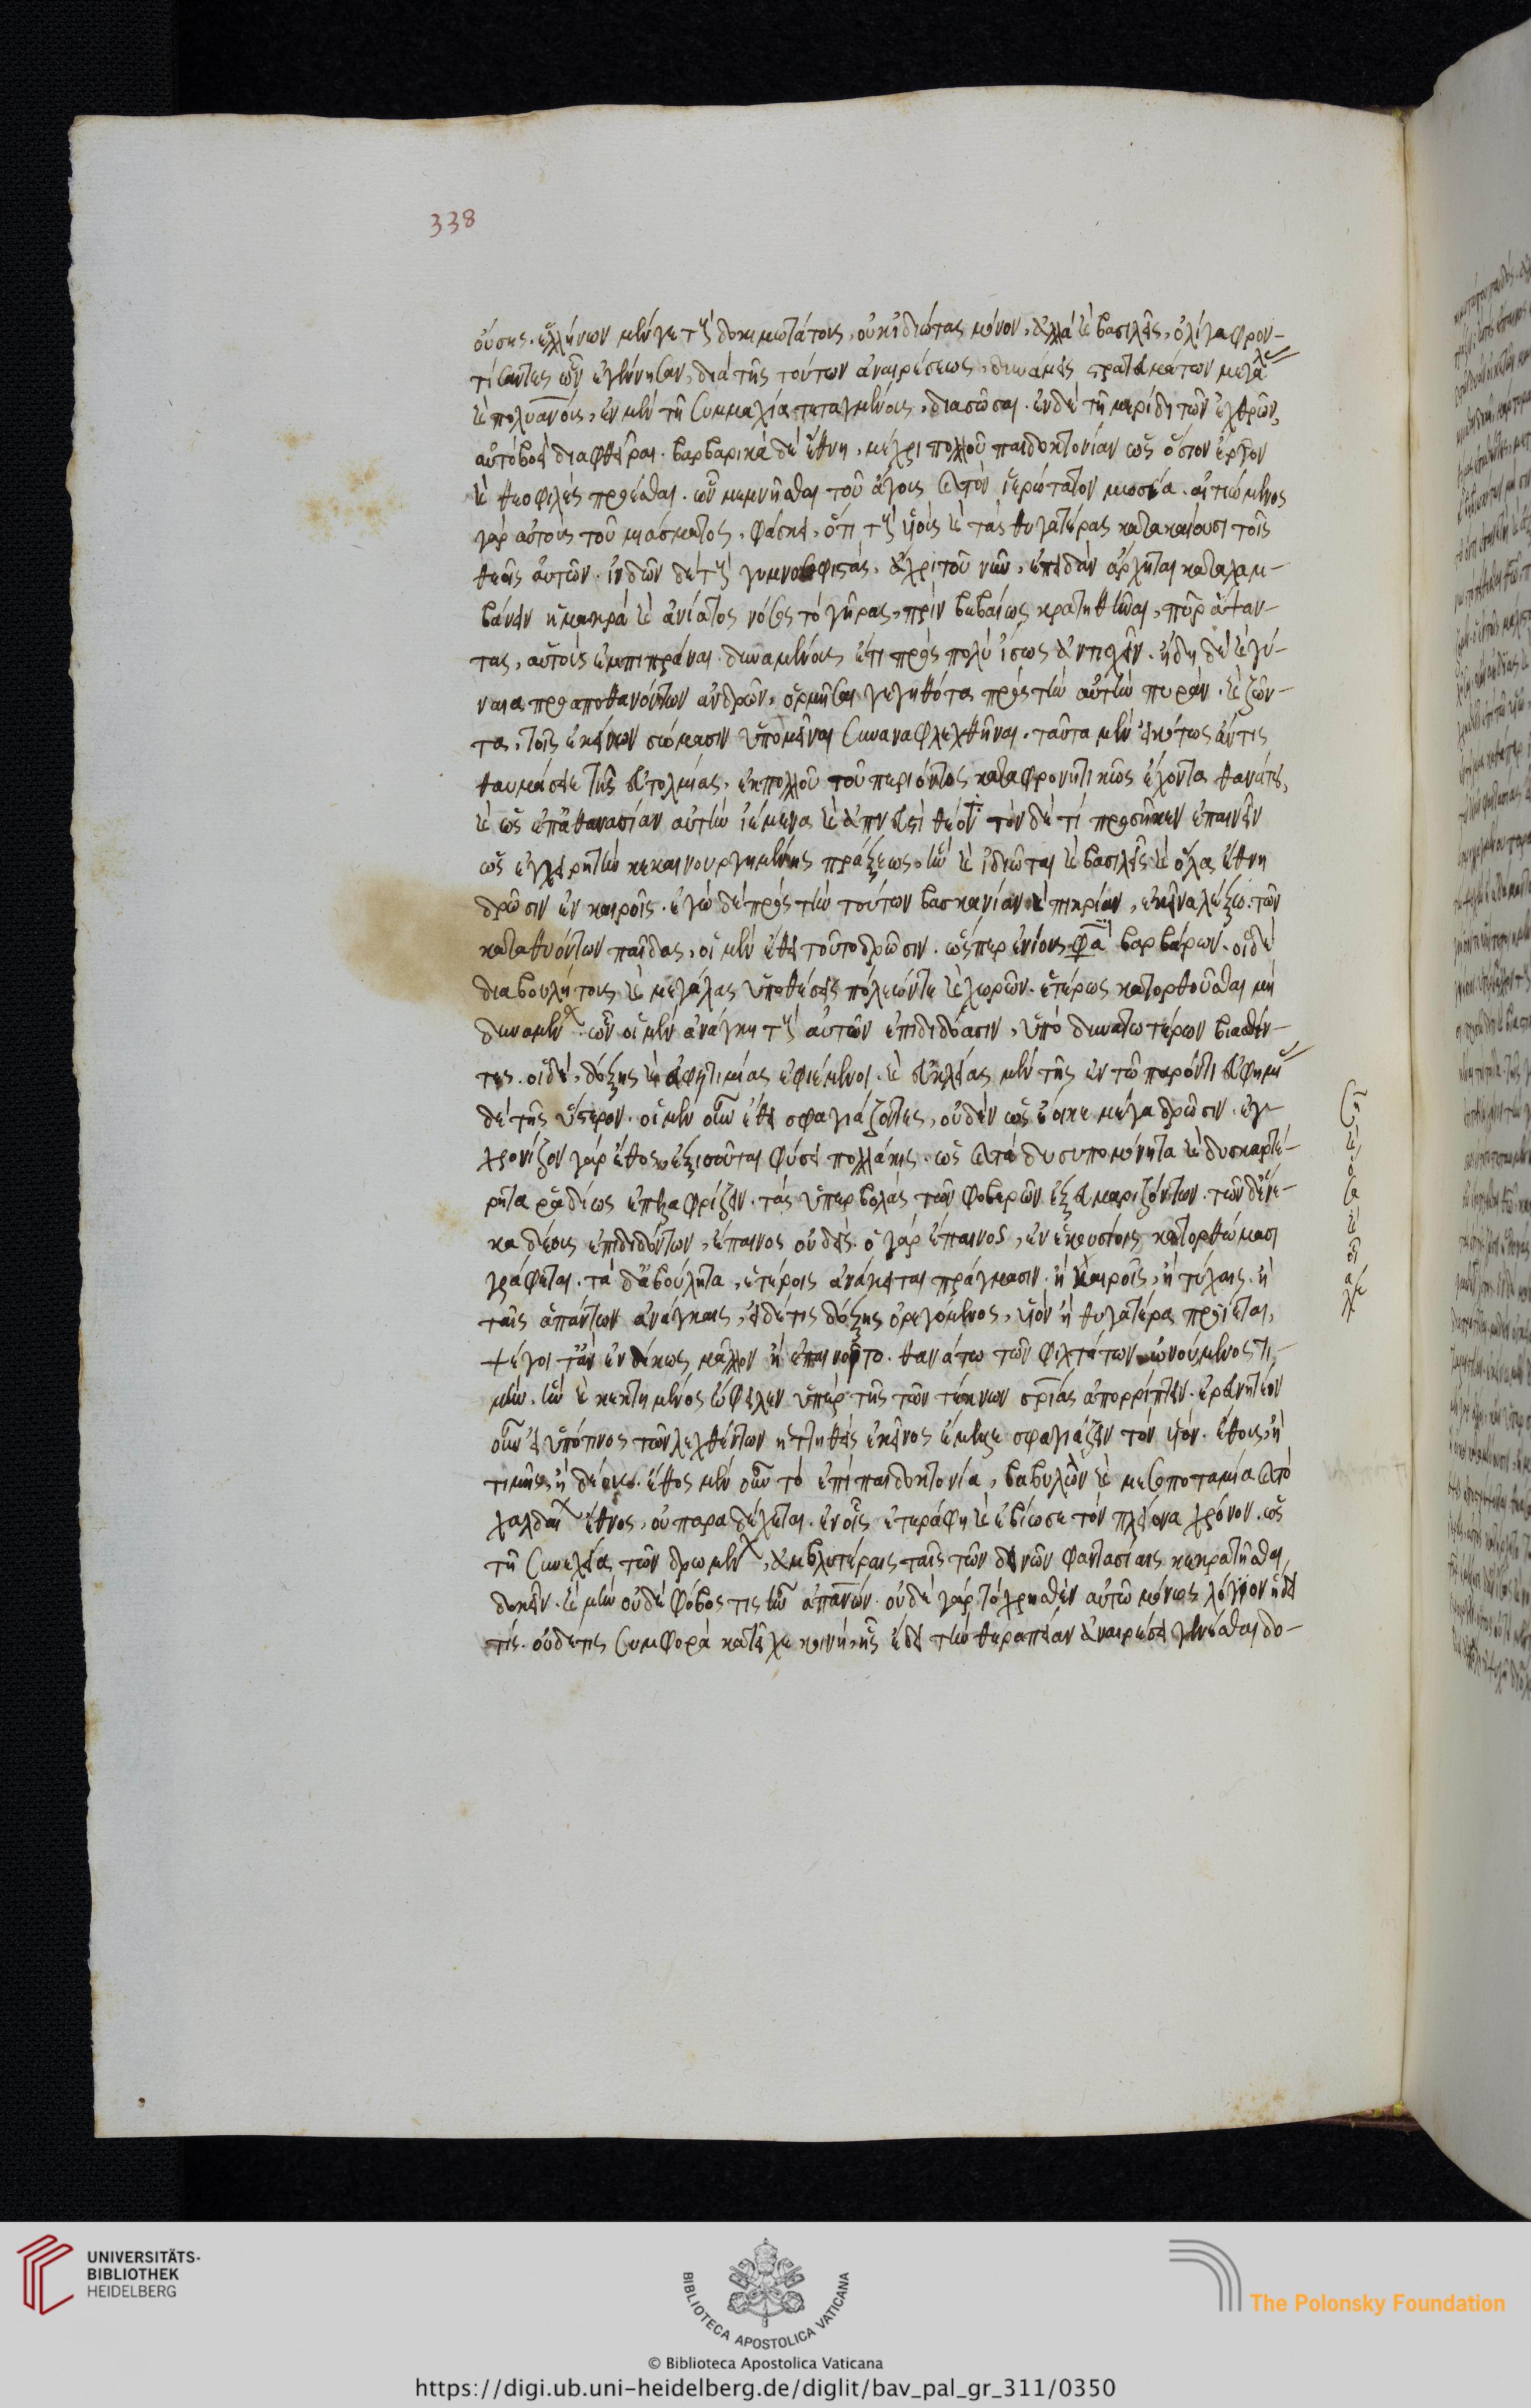 338
ούσης. ἑλλήνων μέν γε τοὺς δοκιμωτάτους, οὐκ ἰδιώτας μόνον, ἀλλὰ καὶ βασιλεῖς, ὀλίγα φρον-
τίσαντες ὧν ἐγέννησαν, διὰ τῆς τούτων ἀναιρέσεως, δυνάμεις στρατευμάτων μεγάλας
καὶ πολυανους, ἐν μὲν τῇ συμμαχία τεταγμένοις, διασῶσαι. ἐν δὲ τῇ μερίδι τῶν ἐχθρῶν,
αὐτοβοεὶ διαφθεῖραι. βαρβαρικὰ δὲ ἔθνη, μέχρι πολλοῦ παιδοκτονίαν ὡς ὅσιον ἔργον
καὶ θεοφιλὲς προσέσθαι. ὧν μεμνῆσθαι τοῦ ἄγους καὶ τὸν ἱερώτατον μωσέα. αἰτιώμενος
γὰρ αὐτοὺς τοῦ μιάσματος, φάσκει, ὅτι τοὺς υἱοὺς καὶ τὰς θυγατέρας κατακαίουσι τοῖς
θεοῖς αὐτῶν. ἰνδῶν δὲ τοὺς γυμνοσοφιστάς, ἄχρι τοῦ νῦν, ἐπειδὰν ἄρχηται καταλαμ-
βάνειν ἡ μακρὰ καὶ ἀνίατος νόσος τὸ γῆρας, πρὶν βεβαίως κρατηθῆναι, πῦρ ἅψαν-
τας, αὑτοὺς ἐμπιπράναι δυναμένους ἔτι πρὸς πολὺ ἴσως ἀντισχεῖν. ἤδη δὲ καὶ γύ-
ναια προαποθανόντων ἀνδρῶν, ὁρμῆσαι γεγηθότα πρὸς τὴν αὐτὴν πυράν. καὶ ζῶν-
τα, τοῖς ἐκείνων σώμασιν ὑπομεῖναι συναναφλεχθῆναι. ταῦτα μὲν εἰκότως ἄν τις
θαυμάσειε τῆς εὐτολμίας, ἐκ πολλοῦ τοῦ περιόντος καταφρονητικῶς ἔχοντα θανάτου,
καὶ ὡς ἐπ' ἀθανασίαν αὐτὴν ἱέμενα καὶ ἀπνευστὶ θέοντα. τὸν δὲ τί προσῆκεν ἐπαινεῖν
ὡς ἐγχειρητὴν κεκαινουργημένης πράξεως. ἣν καὶ ἰδιῶται καὶ βασιλεῖς καὶ ὅλα ἔθνη
δρῶσιν ἐν καιροῖς. ἐγὼ δὲ πρὸς τὴν τούτων βασκανίαν καὶ πικρίαν, ἐκεῖνα λέξω. τῶν
καταθυόντων παῖδας, οἱ μὲν ἔθει τοῦτο δρῶσιν. ὥσπερ ἐνίους φασὶ βαρβάρων. οἱ δὲ
διαβουλήτους καὶ μεγάλας ὑποθέσεις πόλεών τε καὶ χωρῶν. ἑτέρως κατορθοῦσθαι μὴ
δυναμένων. ὧν οἱ μὲν ἀνάγκη τοὺς αὐτῶν ἐπιδιδόασιν, ὑπὸ δυνατωτέρων βιασθέν-
τες. οἱ δέ, δόξης καὶ τιμίας ἐφιέμενοι. καὶ εὐκλείας μὲν τῆς ἐν τῷ παρόντι εὐφημίας
δὲ τῆς ὕστερον. οἱ μὲν οὖν ἔθει σφαγιάζοντες, οὐδὲν ὡς ἔοικε μέγα δρῶσιν. ἐγ-
χρονίζον γὰρ ἔθος, ἐξισοῦται φύσει πολλάκις. ὡς καὶ τὰ δυσυπομόνητα καὶ δυσκαρτέ-
ρητα ῥᾳδίως ἐπελαφρίζειν. τὰς ὑπερβολὰς τῶν φοβερῶν ἐξευμαρίζοντων. τῶν δ' ἕνε-
κα δέους ἐπιδιδόντων, ἔπαινος οὐδείς. ὁ γὰρ ἔπαινος, ἐν ἑκουσίοις κατορθώμασι
γράφεται. τὰ δ' ἀβούλητα, ἑτέροις ἀνάκειται πράγμασιν. ἢ καιροῖς, ἢ τύχαις. ἢ
ταῖς ἀπ' ἄνων ἀνάγκαις, εἰ δέ τις δόξης ὀρεγόμενος, υἱὸν ἢ θυγατέρα προΐεται,
ψέγοιτ' ἂν ἐνδίκως μᾶλλον ἢ ἐπαινοῖτο. θανάτω τῶν φιλτάτων ὠνούμενος τι-
μήν. ἣν καὶ κεκτημένος ὤφειλεν ὑπὲρ τῆς τῶν τέκνων σρίας ἀπορρίπτειν. ἐρευνητέον
οὖν εἰ ὑπό τινος τῶν λεχθέντων ἡττηθεὶς ἐκεῖνος ἔμελλε σφαγιάζειν τὸν υἱόν. ἔθους, ἢ
τιμῆς, ἢ δέους. ἔθος μὲν οὖν τὸ ἐπὶ παιδοκτονία, βαβυλὼν καὶ μεσοποταμία καὶ τὸ
χαλδαίων ἔθνος, οὐ παραδέχεται. ἐν οἷς ἐτράφη καὶ ἐβίωσε τὸν πλείονα χρόνον. ὡς
τῇ συνεχείᾳ τῶν δρωμένων, ἀμβλυτέραις ταῖς τῶν δεινῶν φαντασίαις κεκρατῆσθαι
δοκεῖν. καὶ μὴν οὐδὲ φόβος τις ἦν ἀπ' ἄνων. οὐδὲ γὰρ τὸ χρησθὲν αὐτῷ μόνως λόγιον ᾔδει
τίς. οὐδέ τις συμφορὰ κατεῖχε κοινή, ἧς ἔδει τὴν θεραπείαν ἀναιρέσει γενέσθαι δο-
UNIVERSITÄTS-
BIBLIOTHEK
HEIDELBERG
BIBLIOTECA APOSTOLICA VATICANA
The Polonsky Foundation
© Biblioteca Apostolica Vaticana
https://digi.ub.uni-heidelberg.de/diglit/bav_pal_gr_311/0350